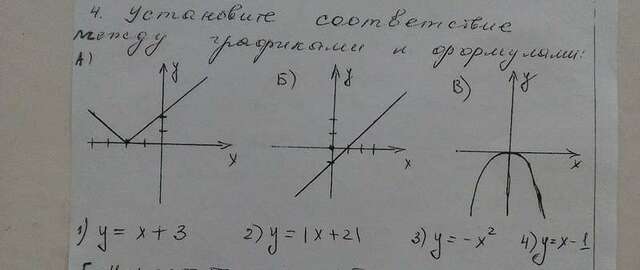 4. Установите соответствие
между графиками и формулами:
А) y Б) y В) y
x x x
1) y = x + 3 2) y = |x + 2| 3) y = -x² 4) y = x - 1